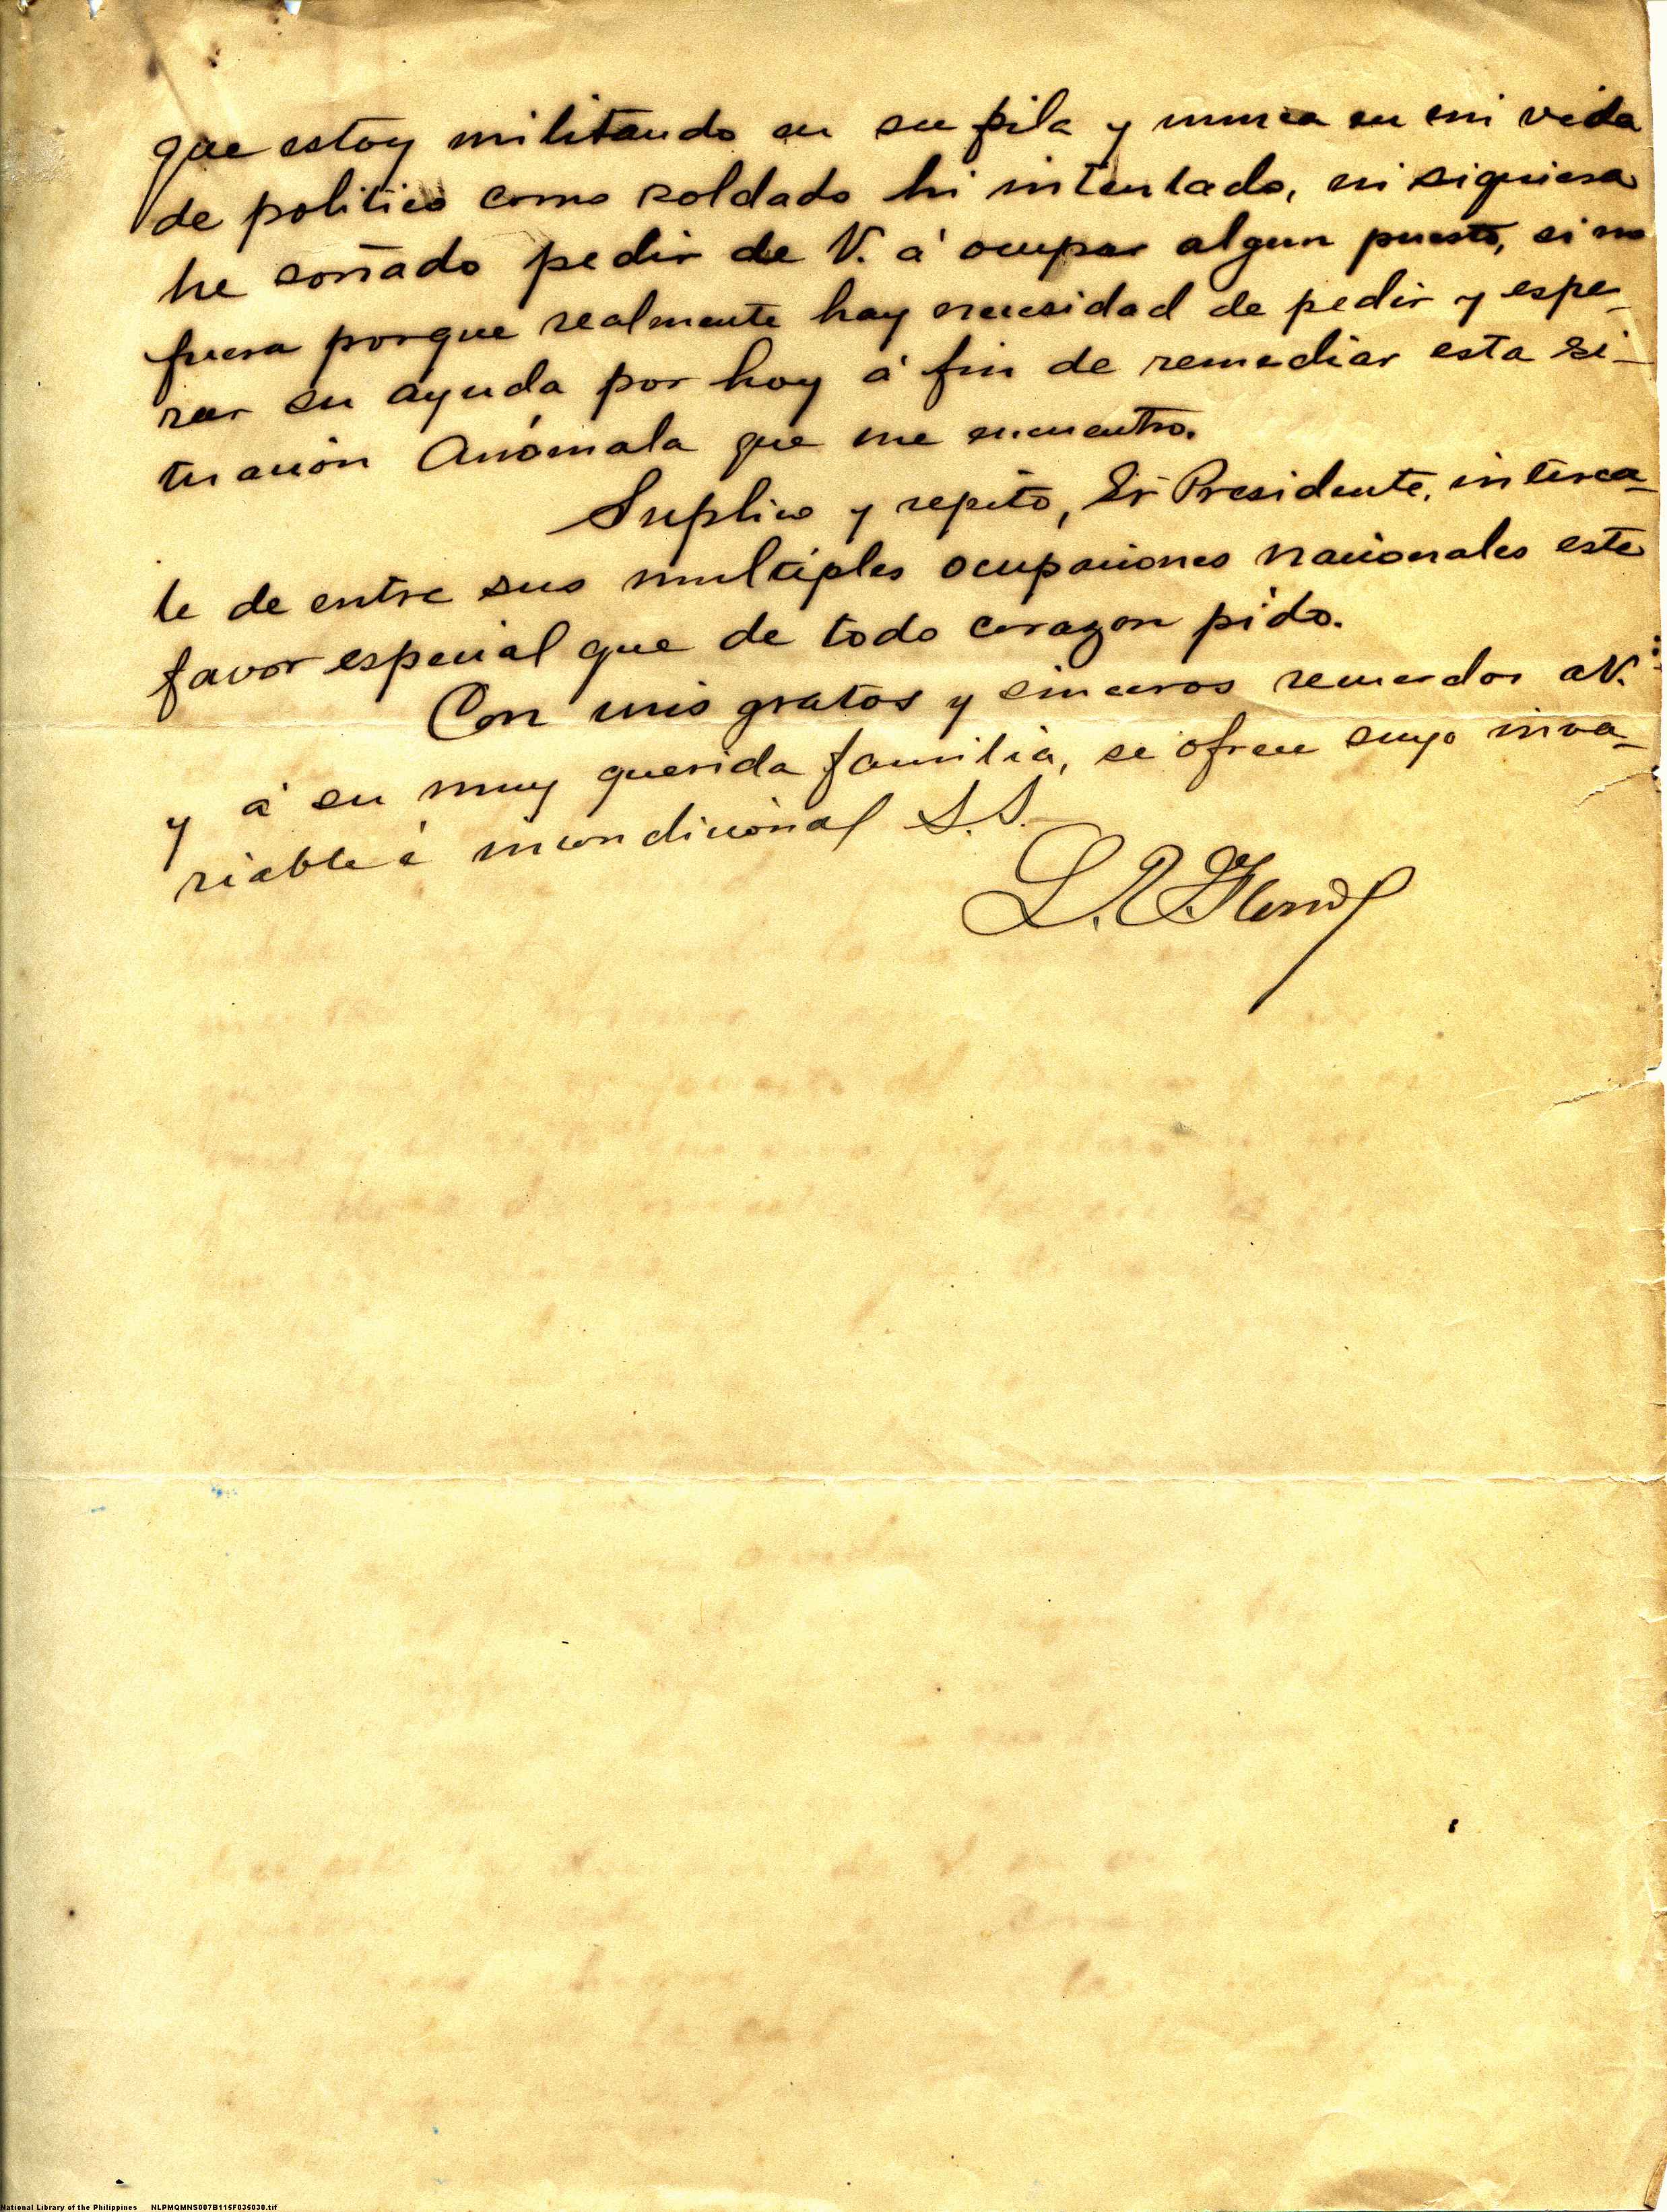 que estoy militando en su fila y nunca en mi vida
de politico como soldado hi intentado, ni siquiera
he soñado pedir de V. á ocupar algun puesto, si no
fuera porque realmente hay necesidad de pedir y espe-
rar su ayuda por hoy á fin de remediar esta si-
tuación Anómala que me encuentro.
Suplico y repito, Sr Presidente, interca-
le de entre sus multiples ocupaciones nacionales este
favor especial que de todo corazon pido.
Con mis gratos y sinceros recuerdos a V.
y á su muy querida familia, se ofrece suyo inva-
riable é incondicional S.S.
National Library of the Philippines NLPMQMNS007B115F035030.tif